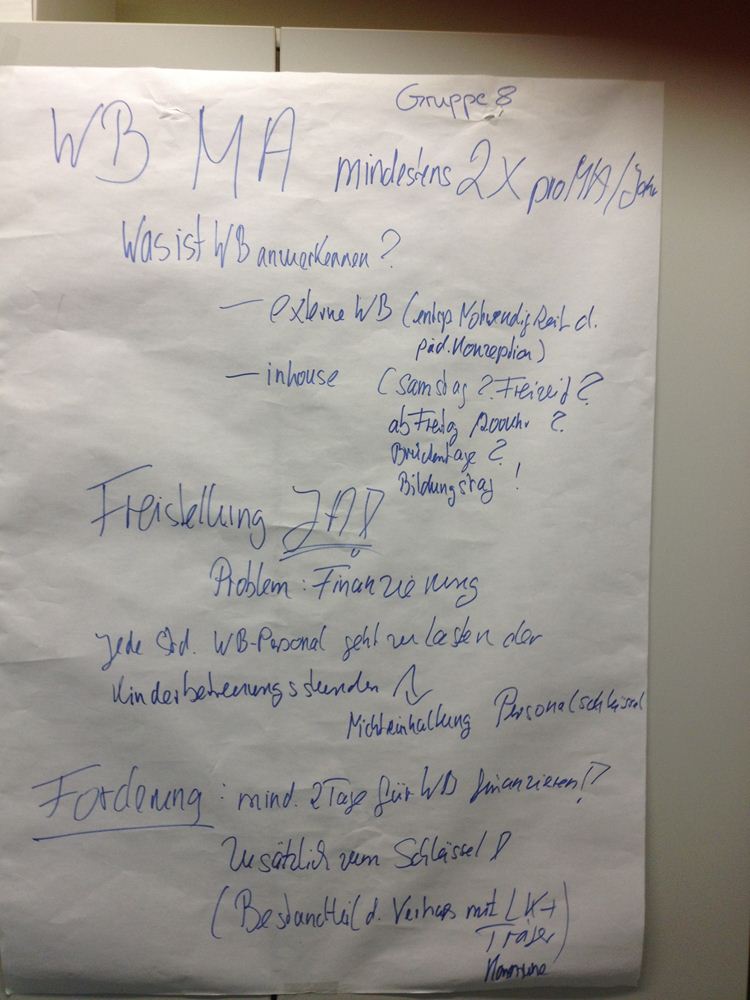 Gruppe 8
WB MA mindestens 2x pro MA/Jahr
Was ist WB anzuerkennen?
— externe WB (entsp Notwendigkeit d.
päd. Konzeption)
— inhouse (Samstag? Freizeit?
ab Freitag 1200 Uhr ?
Brückentage ?
Bildungstag !
Freistellung JA!
Problem: Finanzierung
Jede Std. WB-Personal geht zu Lasten der
Kinderbetreuungsstunden
Nichteinhaltung Personalschlüssel
Forderung: mind. 2 Tage für WB finanzieren!
Zusätzlich zum Schlüssel!
(Bestandteil d. Vertrags mit LK +
Träger)